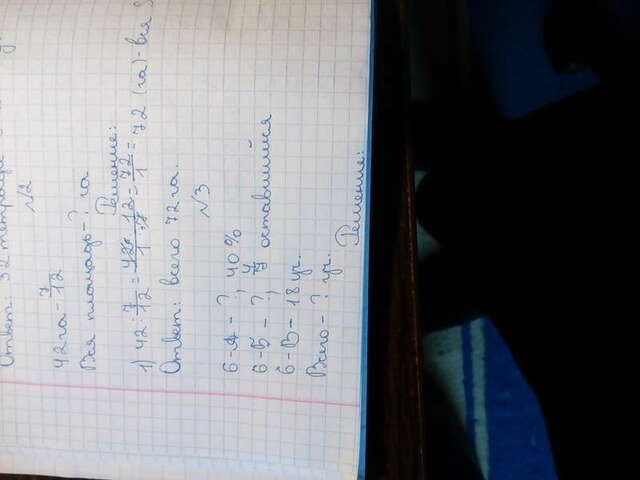 Ответ: 32 тетради
№2
42 га - 7/12
Вся площадь - ? га
Решение:
1) 42 : 7/12 = 42 · 12 / 1 · 7 = 72/1 = 72 (га) - вся S
Ответ: всего 72 га.
№3
6-А - ?, 40%
6-Б - ?, оставшийся
6-В - 18 уч.
Всего - ? уч.
Решение: